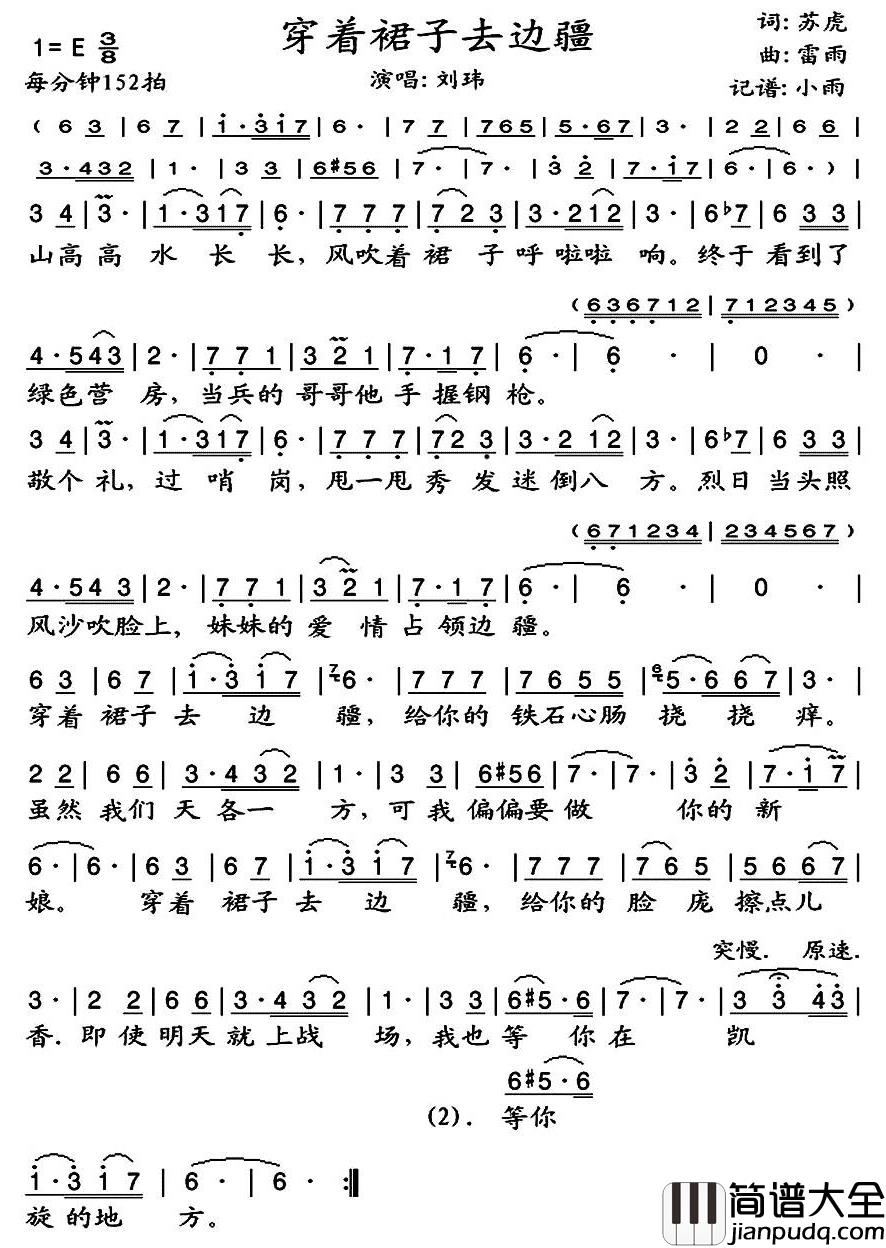 穿着裙子去边疆
1= E 3/8
词: 苏虎
曲: 雷雨
每分钟152拍
演唱: 刘玮
记谱: 小雨
( 6 3 | 6 7 | 1 · 3 1 7 | 6 · | 7 7 | 7 6 5 | 5 · 6 7 | 3 · | 2 2 | 6 6 |
3 · 4 3 2 | 1 · | 3 3 | 6 #5 6 | 7 · | 7 · | 3 2 | 7 · 1 7 | 6 · | 6 · ) |
3 4 | 3 · | 1 · 3 1 7 | 6 · | 7 7 7 | 7 2 3 | 3 · 2 1 2 | 3 · | 6 b7 | 6 3 3 |
山高 高 水 长 长, 风吹着 裙 子 呼 啦啦 响。终于 看到了
( 6 3 6 7 1 2 | 7 1 2 3 4 5 )
4 · 5 4 3 | 2 · | 7 7 1 | 3 2 1 | 7 · 1 7 | 6 · | 6 · | 0 · |
绿色营 房, 当兵的 哥哥他 手 握钢 枪。
3 4 | 3 · | 1 · 3 1 7 | 6 · | 7 7 7 | 7 2 3 | 3 · 2 1 2 | 3 · | 6 b7 | 6 3 3 |
敬个 礼, 过 哨 岗, 甩一甩 秀 发 迷 倒八 方。烈日 当头照
( 6 7 1 2 3 4 | 2 3 4 5 6 7 )
4 · 5 4 3 | 2 · | 7 7 1 | 3 2 1 | 7 · 1 7 | 6 · | 6 · | 0 · |
风沙吹脸上, 妹妹的 爱 情 占 领边 疆。
6 3 | 6 7 | 1 · 3 1 7 | 7 6 · | 7 7 7 | 7 6 5 5 | 6 5 · 6 6 7 | 3 · |
穿着 裙子 去 边 疆, 给你的 铁石心肠 挠 挠 痒。
2 2 | 6 6 | 3 · 4 3 2 | 1 · | 3 3 | 6 #5 6 | 7 · | 7 · | 3 2 | 7 · 1 7 |
虽然 我们 天 各一 方, 可我 偏偏要 做 你的 新
6 · | 6 · | 6 3 | 6 7 | 1 · 3 1 7 | 7 6 · | 7 7 7 | 7 6 5 | 5 6 6 7 |
娘。 穿着 裙子 去 边 疆, 给你的 脸 庞 擦点儿
突慢. 原速.
3 · | 2 2 | 6 6 | 3 · 4 3 2 | 1 · | 3 3 | 6 #5 · 6 | 7 · | 7 · | 3 3 4 3 |
香. 即使 明天 就 上战 场, 我也 等 你 在 凯
6 #5 · 6
(2). 等你
1 · 3 1 7 | 6 · | 6 · :||
旋 的地 方。
简谱大全
jianpudq.com